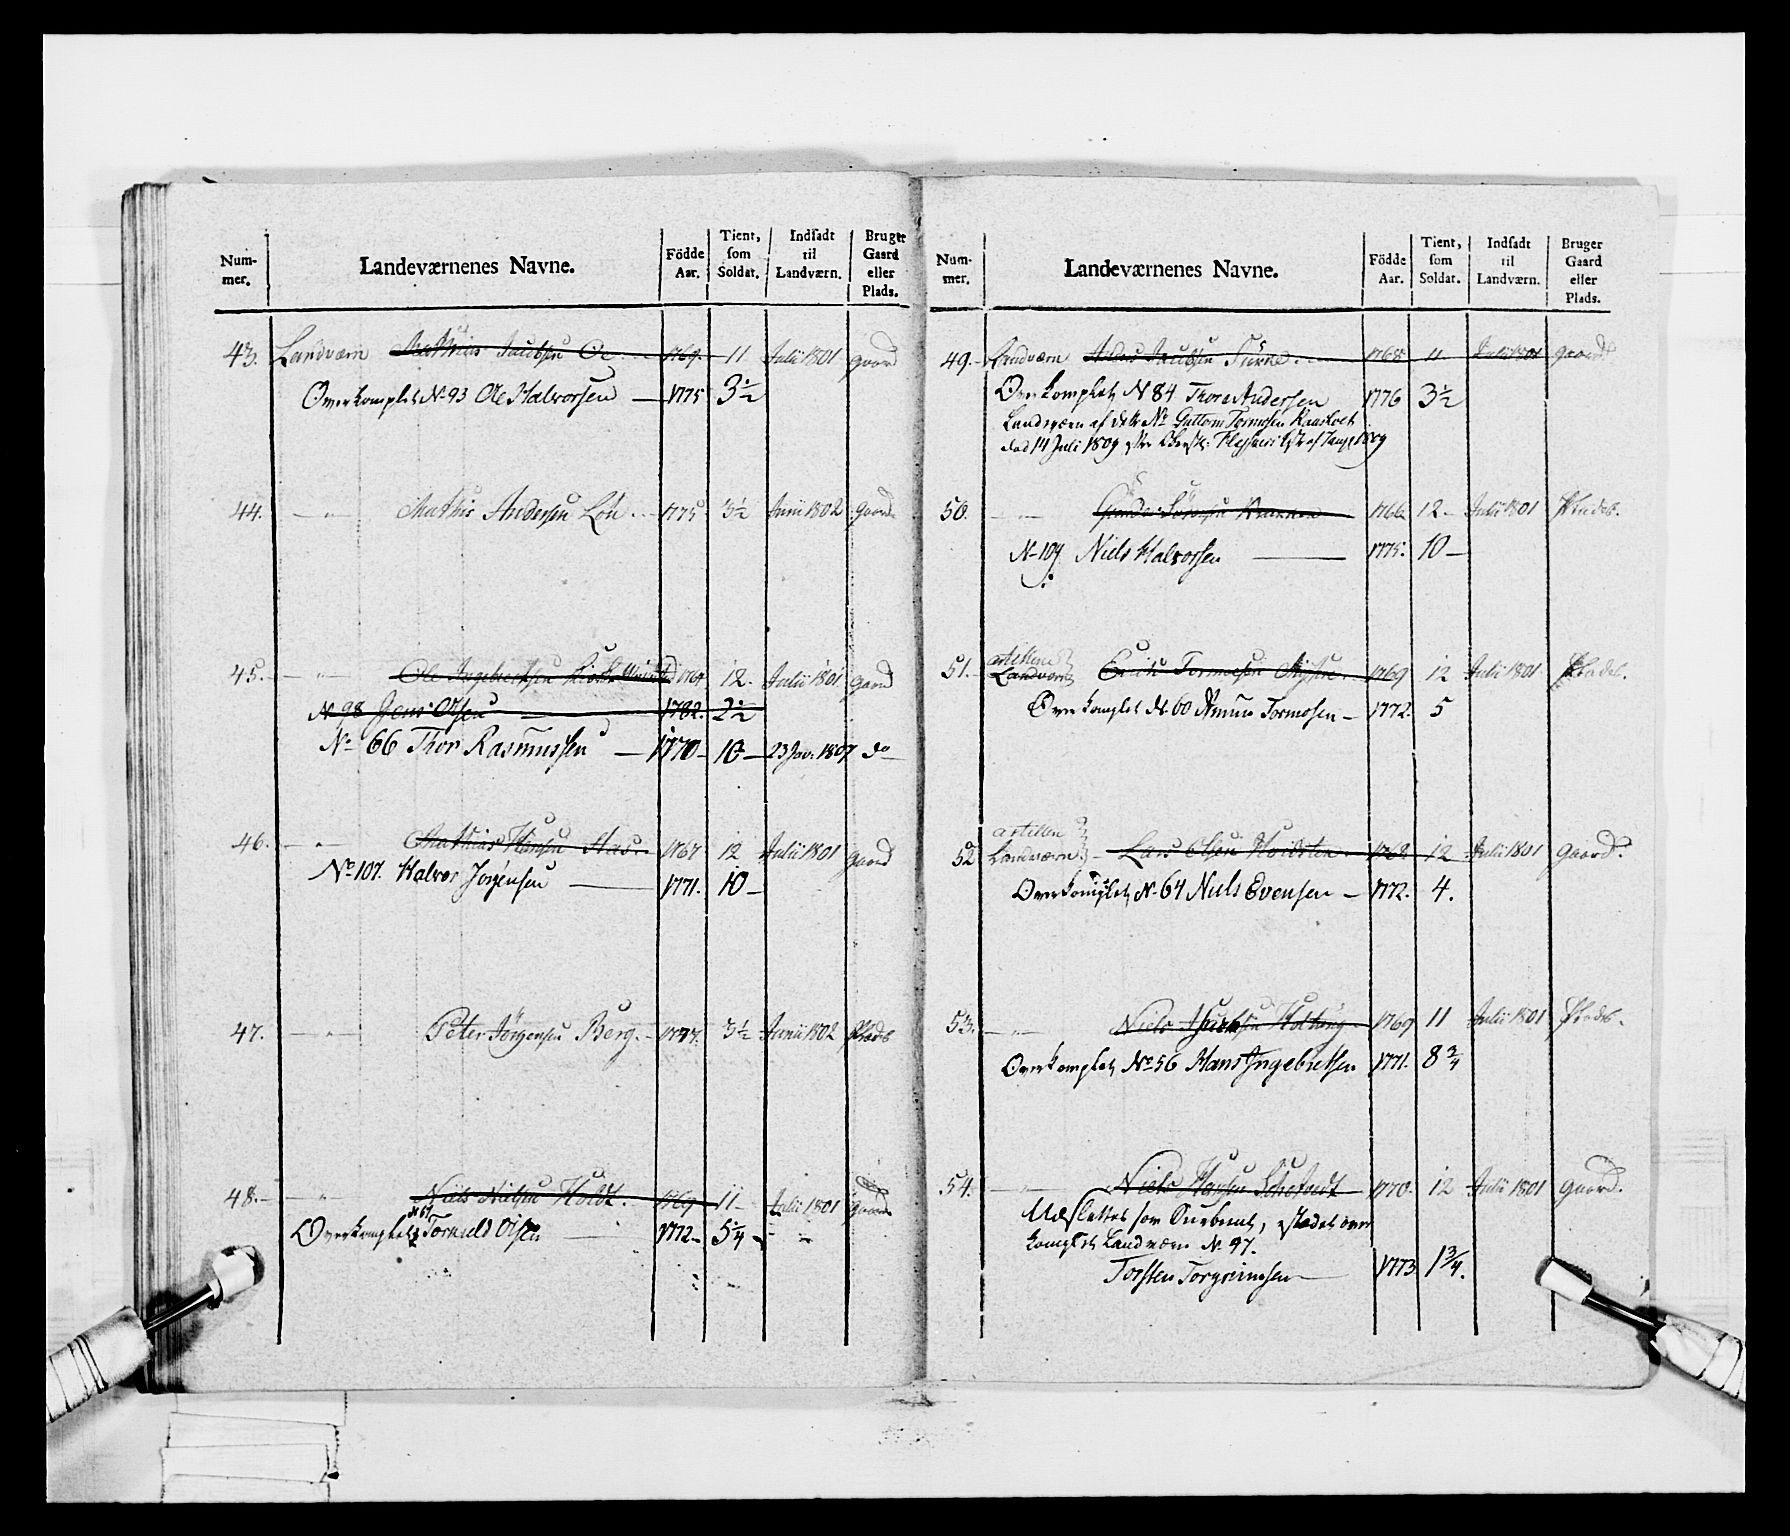 Num-
mer.
Landeværnenes Navne.
Födde
Aar.
Tient,
som
Soldat.
Indsadt
til
Landværn.
Bruger
Gaard
eller
Plads.
43. Landværn Mathias Jacobsen Oe 1769. 11 Julii 1801 gaard
Overkomplet No 93 Ole Halvorsen — 1775 3½
44. — " — Mathis Andersen Lón. 1775 3½ Junii 1802 gaard
45. — " — Ole Ingebretsen 1769 12. Julii 1801 gaard
No 98 Jens Olsen — 1782. 2½
No 66 Thor Rasmussen — 1770 — 10 — 23 Jan. 1807 do
46. — " — Mathias Hansen 1767 12 Julii 1801 gaard
No 107. Halvor Jörgensen — 1771. 10 —
47. — " — Peter Jörgensen Berg. 1777. 3½ Junii 1802 Plads
48. — " — Niels Nielsen Holdt. 1769 11 — Julii 1801 gaard
No 61
Overkomplet Tormeld Olsen — 1772 — 5¼
Num-
mer.
Landeværnenes Navne.
Födde
Aar.
Tient,
som
Soldat.
Indsadt
til
Landværn.
Bruger
Gaard
eller
Plads.
49. Landværn Jacobsen 1768 11 Julii 1801 gaard
Overkomplet No 84 Thore Andersen 1776 3½
Landværn af dette No Guttorm Tormosen
død 14 Juli 1809
50. — " — 1766 12 — Julii 1801 Plads.
No 109. Niels Halvorsen — 1775. 10 —
51. Landværn Erich Tormosen 1769 12 Julii 1801. Plads.
Overkomplet No 60 Amun Tormosen — 1772. 5
52 Landværn — Lars Olsen 1768 12 Julii 1801 gaard.
Overkomplet No 64 Niels Evensen — 1772. 4.
53. — " — Niels 1769 11 Julii 1801 Plads.
Overkomplet No 56 Hans Ingebretsen 1771. 8¾
54. — " — Niels Hansen 1770. 12 Julii 1801 gaard.
Udslettes som isteden over
komplet Landværn No 97.
Torsten Torgrimsen — 1773 1¾.